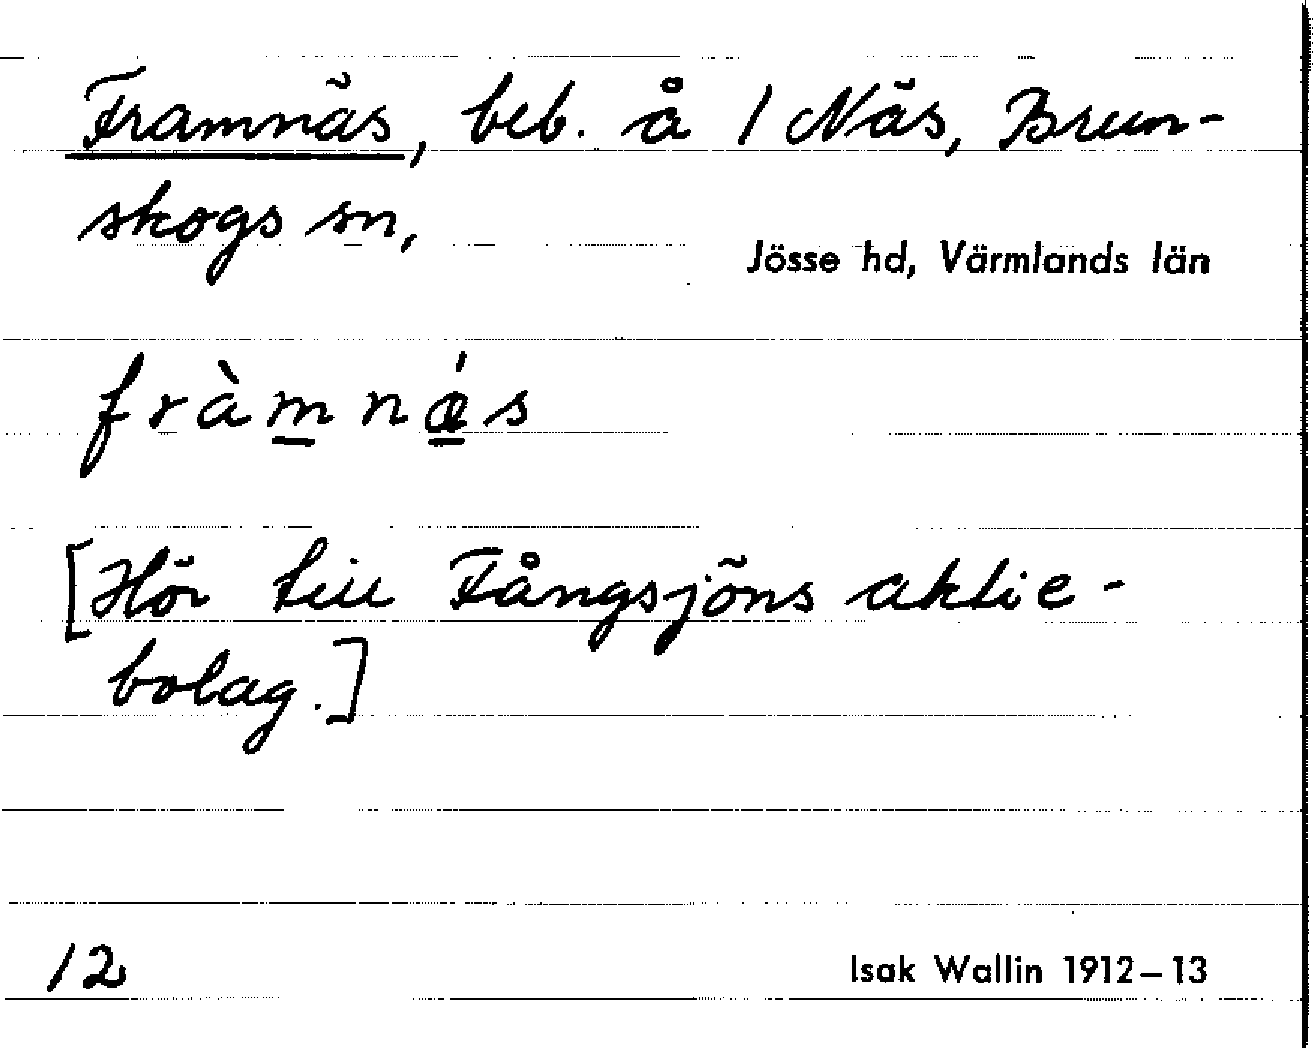 Framnäs, beb. å 1 Näs, Brun-
skogs sn,
Jösse hd, Värmlands län
fràm̲nǽ̲s
[Hör till Fångsjöns aktie-
bolag.]
12
Isak Wallin 1912–13